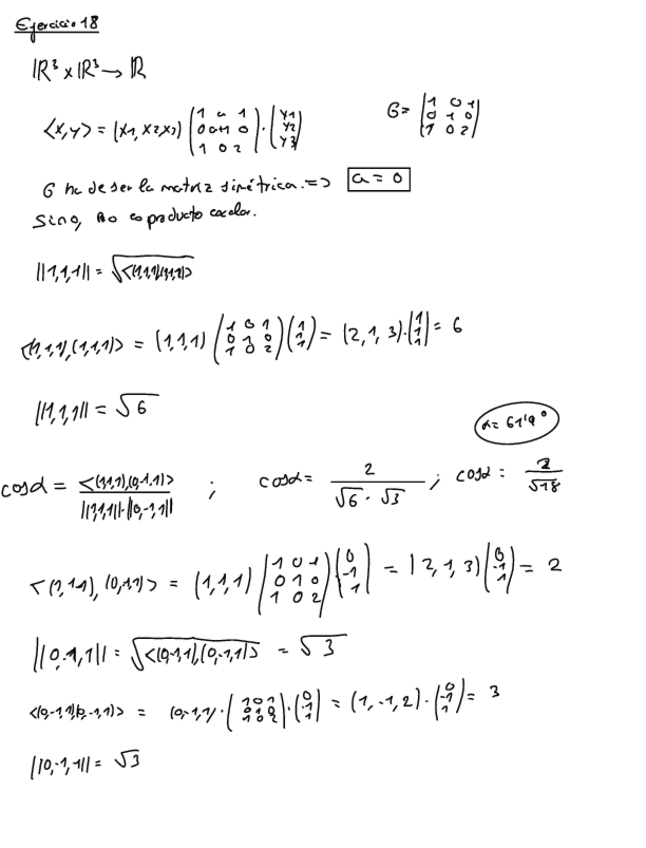 Ejercicio 18
ℝ³ x ℝ³ → ℝ
<x,y> = (x1, x2 x3) (1 a 1 / 0 a+1 0 / 1 0 2) · (y1 / y2 / y3)    G = (1 0 1 / 0 1 0 / 1 0 2)
G ha de ser la matriz simétrica. => a = 0
Sino, no es producto escalar.
||1,1,1|| = √<(1,1,1),(1,1,1)>
<(1,1,1),(1,1,1)> = (1,1,1) (1 0 1 / 0 1 0 / 1 0 2) (1 / 1 / 1) = (2, 1, 3) · (1 / 1 / 1) = 6
||1,1,1|| = √6
α = 61'9°
cosα = <(1,1,1),(0,-1,1)> / ||1,1,1||·||0,-1,1|| ; cosα = 2 / √6 · √3 ; cosα = 2 / √18
<(1,1,1), (0,-1,1)> = (1,1,1) (1 0 1 / 0 1 0 / 1 0 2) (0 / -1 / 1) = (2, 1, 3) (0 / -1 / 1) = 2
||0,-1,1|| = √<(0,-1,1),(0,-1,1)> = √3
<(0,-1,1)(0,-1,1)> = (0,-1,1) · (1 0 1 / 0 1 0 / 1 0 2) · (0 / -1 / 1) = (1, -1, 2) · (0 / -1 / 1) = 3
||0,-1,1|| = √3